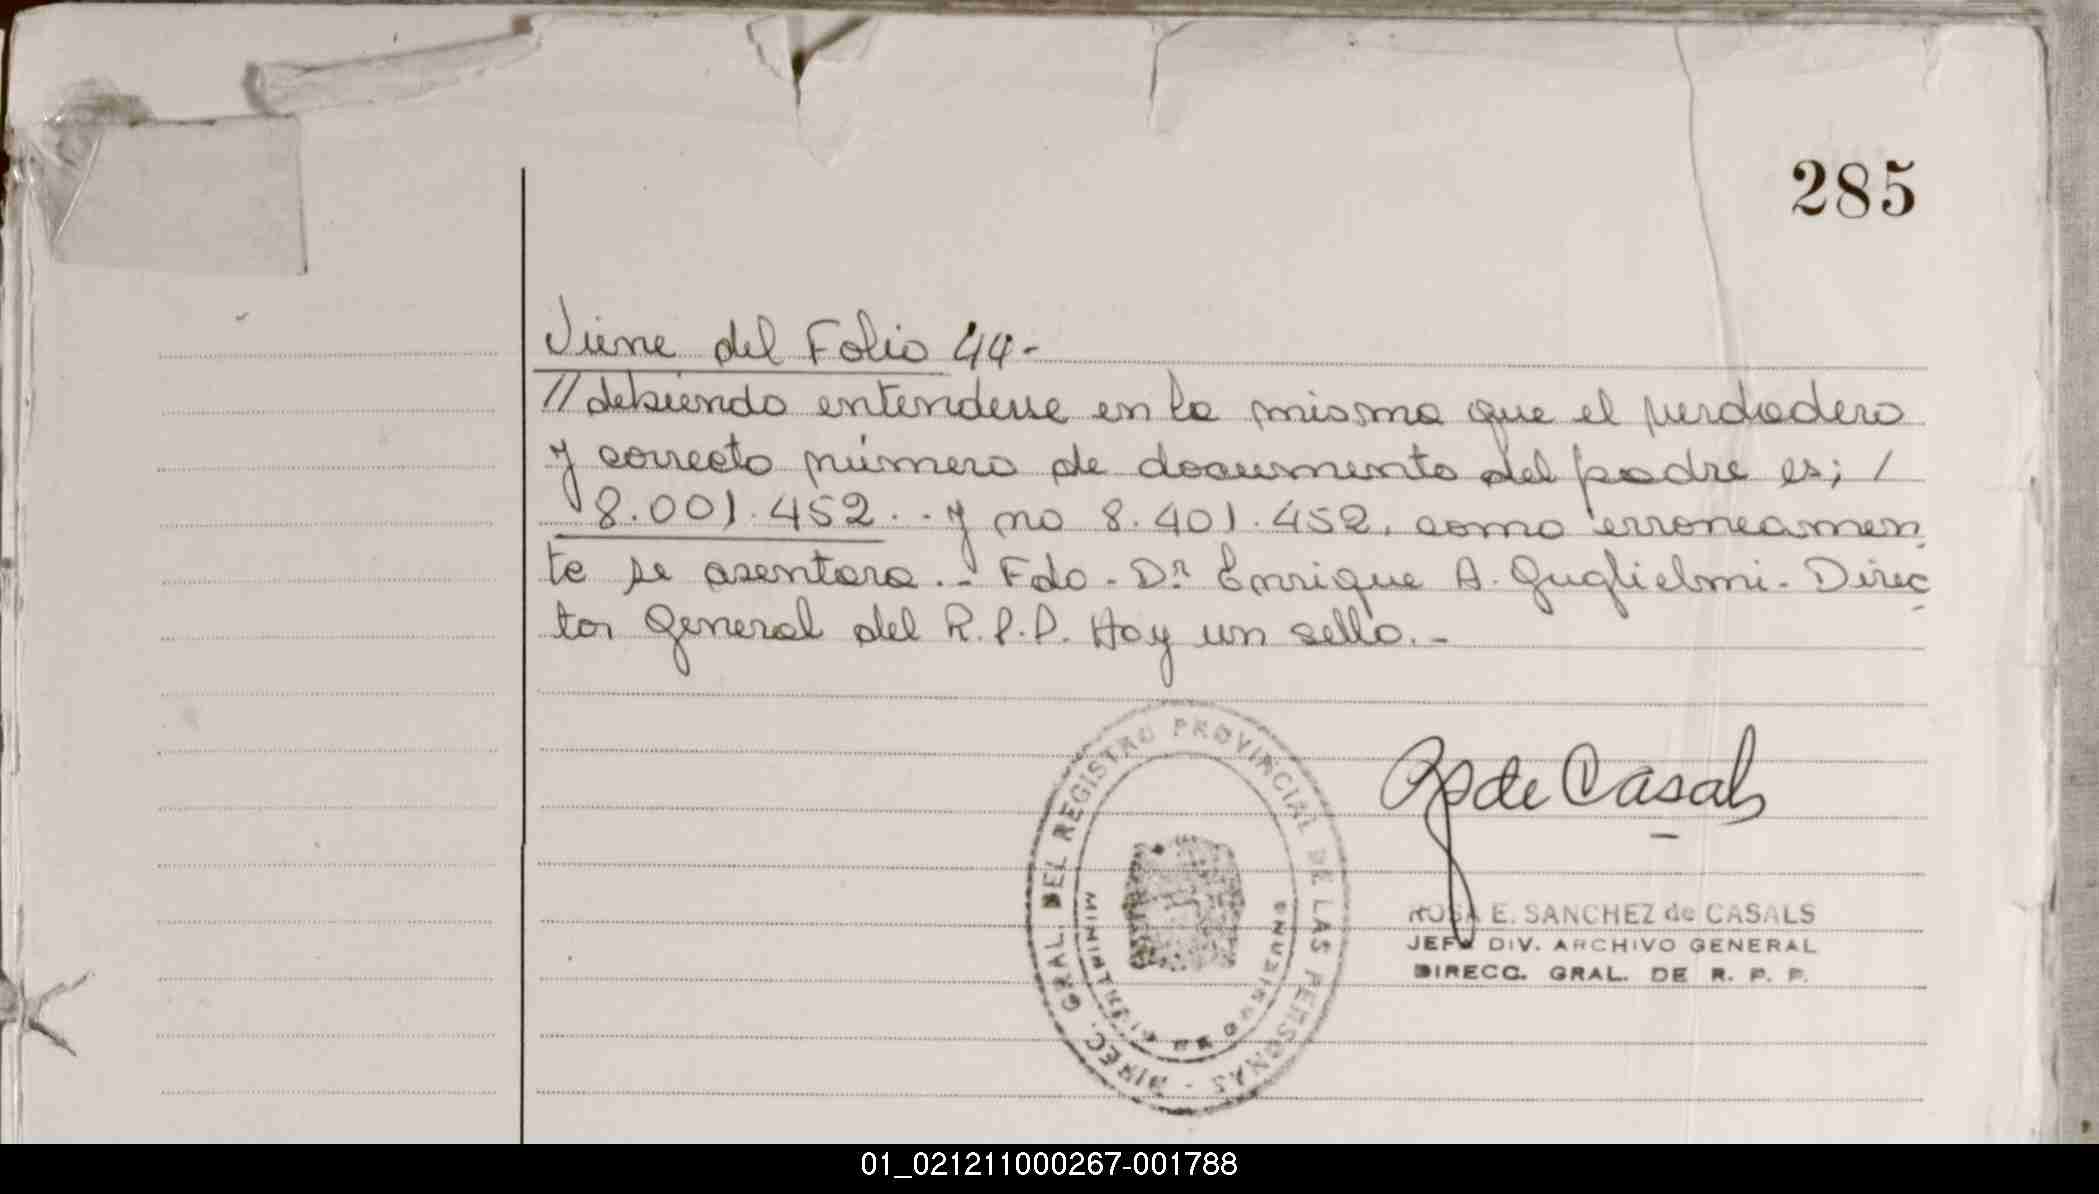 285
Viene del Folio 44-
//debiendo entenderse en la misma que el verdadero
y correcto número de documento del padre es; /
8.001.452.. y no 8.401.452. como erroneamen
te se asentara.- Fdo. Dr. Enrique A. Guglielmi. Direc
tor General del R.P.P. Hay un sello.-
DIREC. GRAL. DEL REGISTRO PROVINCIAL DE LAS PERSONAS -
R S de Casals
ROSA E. SANCHEZ de CASALS
JEFA DIV. ARCHIVO GENERAL
DIRECC. GRAL. DE R. P. P.
01_021211000267-001788